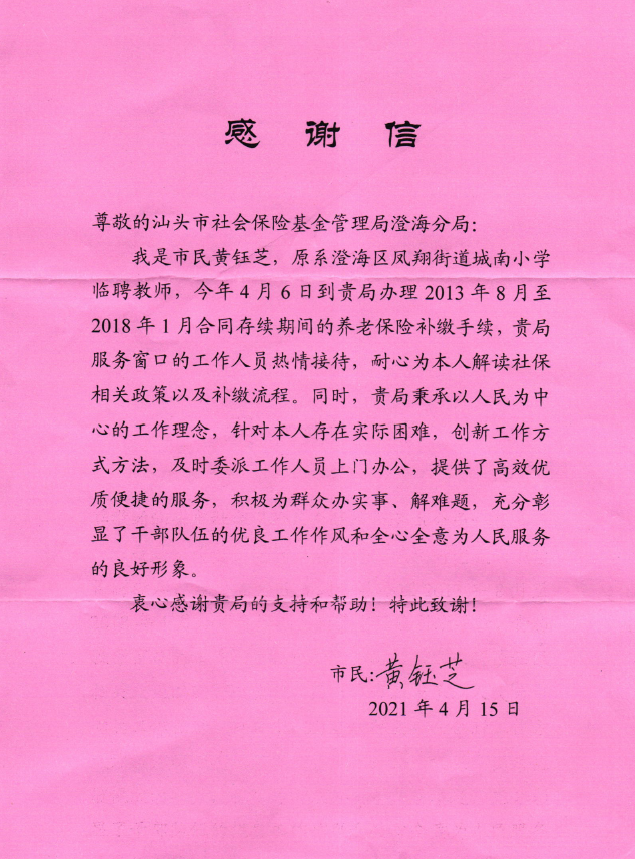 感谢信
尊敬的汕头市社会保险基金管理局澄海分局：
我是市民黄钰芝，原系澄海区凤翔街道城南小学
临聘教师，今年4月6日到贵局办理2013年8月至
2018年1月合同存续期间的养老保险补缴手续，贵局
服务窗口的工作人员热情接待，耐心为本人解读社保
相关政策以及补缴流程。同时，贵局秉承以人民为中
心的工作理念，针对本人存在实际困难，创新工作方
式方法，及时委派工作人员上门办公，提供了高效优
质便捷的服务，积极为群众办实事、解难题，充分彰
显了干部队伍的优良工作作风和全心全意为人民服务
的良好形象。
衷心感谢贵局的支持和帮助！特此致谢！
市民：黄钰芝
2021年4月15日